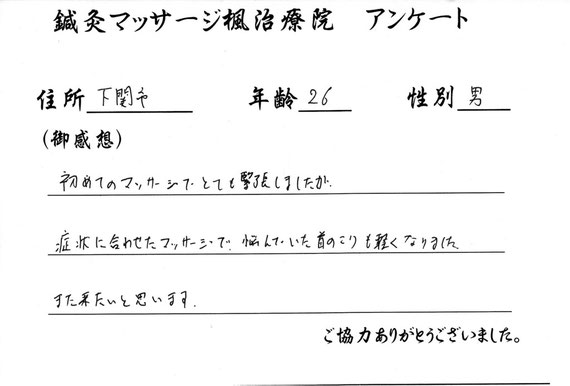 鍼灸マッサージ楓治療院 アンケート
住所 下関市 年齢 26 性別 男
(御感想)
初めてのマッサージでとても緊張しましたが、
症状に合わせたマッサージで、悩んでいた首のこりも軽くなりました。
また来たいと思います。
ご協力ありがとうございました。